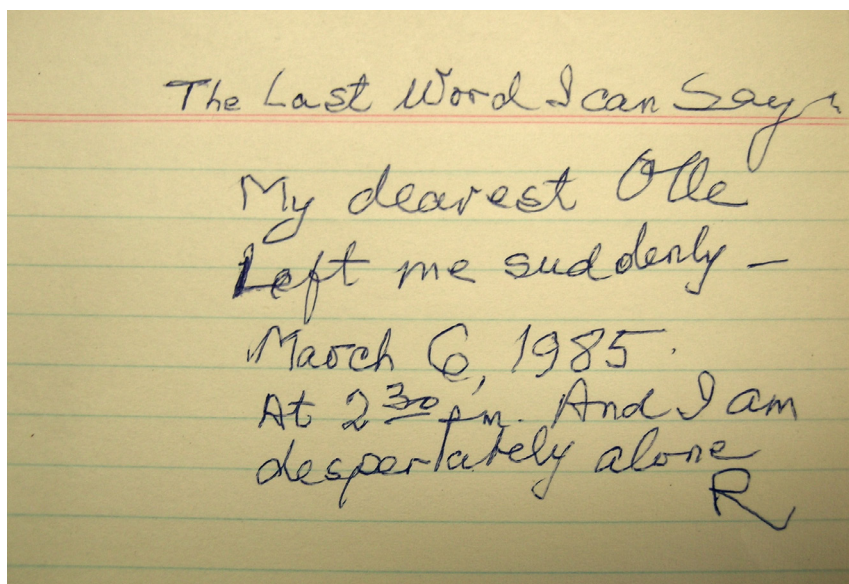 The Last Word I can Say
My dearest Olle
Left me suddenly –
March 6, 1985.
At 2 30 pm. And I am
despertately alone
R